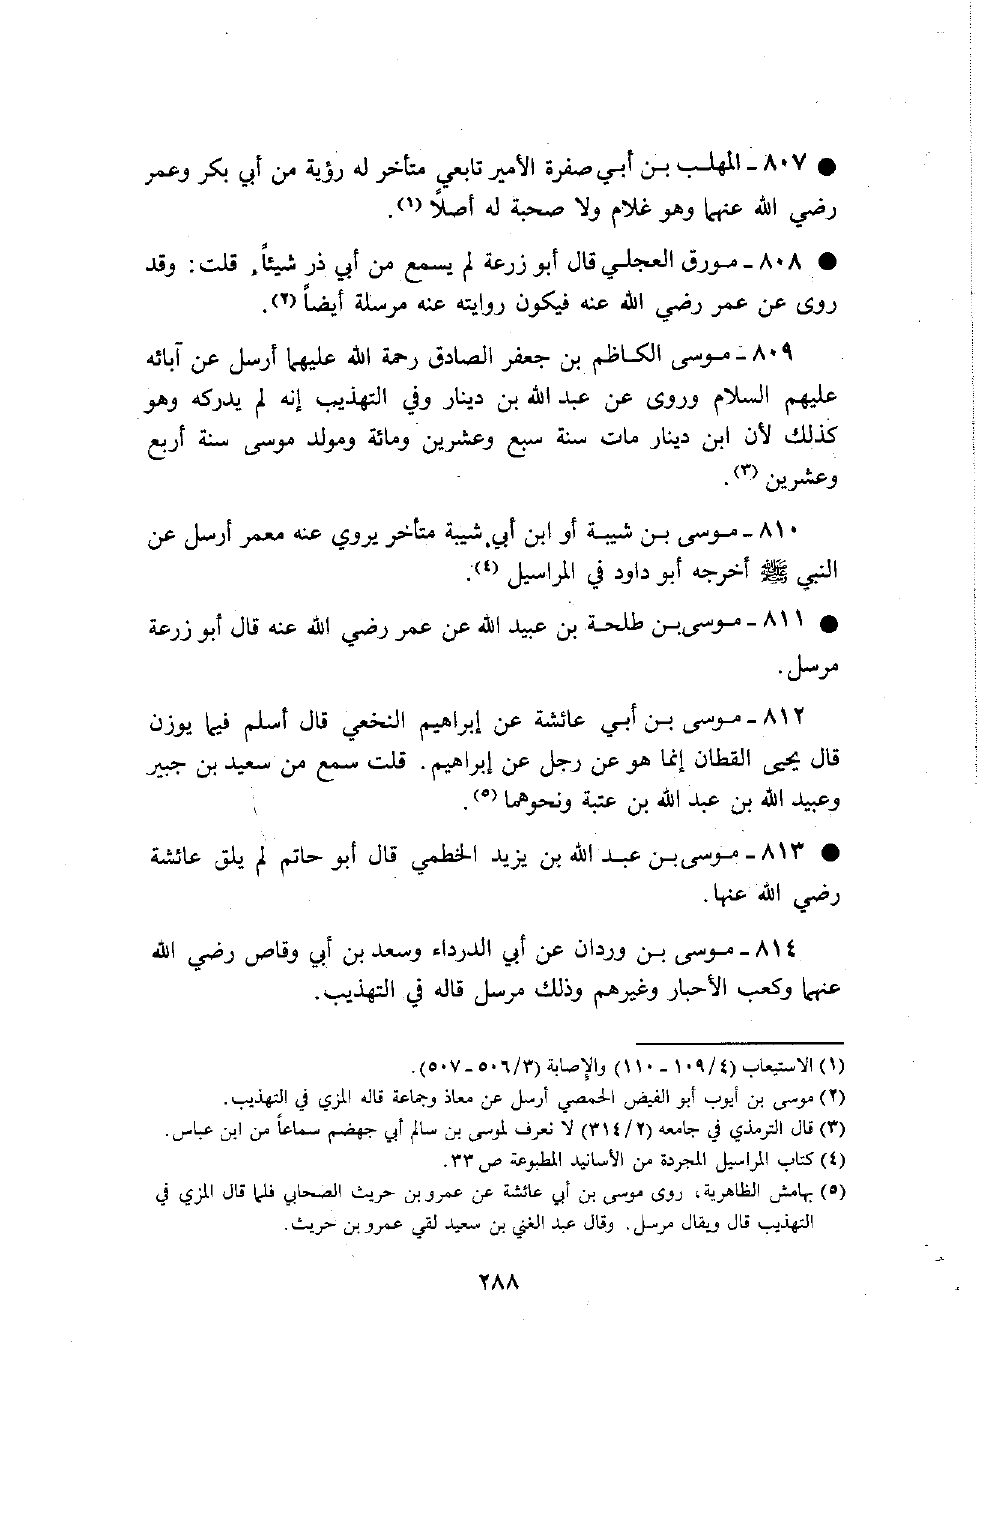 ● ٨٠٧ ـ المهلب بن أبي صفرة الأمير تابعي متأخر له رؤية من أبي بكر وعمر
رضي الله عنهما وهو غلام ولا صحبة له أصلاً (١).
● ٨٠٨ ـ مورق العجلي قال أبو زرعة لم يسمع من أبي ذر شيئاً، قلت: وقد
روى عن عمر رضي الله عنه فيكون روايته عنه مرسلة أيضاً (٢).
٨٠٩ ـ موسى الكاظم بن جعفر الصادق رحمة الله عليهما أرسل عن آبائه
عليهم السلام وروى عن عبد الله بن دينار وفي التهذيب إنه لم يدركه وهو
كذلك لأن ابن دينار مات سنة سبع وعشرين ومائة ومولد موسى سنة أربع
وعشرين (٣).
٨١٠ ـ موسى بن شيبة أو ابن أبي شيبة متأخر يروي عنه معمر أرسل عن
النبي ﷺ أخرجه أبو داود في المراسيل (٤).
● ٨١١ ـ موسى بن طلحة بن عبيد الله عن عمر رضي الله عنه قال أبو زرعة
مرسل.
٨١٢ ـ موسى بن أبي عائشة عن إبراهيم النخعي قال أسلم فيما يوزن
قال يحيى القطان إنما هو عن رجل عن إبراهيم. قلت سمع من سعيد بن جبير
وعبيد الله بن عبد الله بن عتبة ونحوهما (٥).
● ٨١٣ ـ موسى بن عبد الله بن يزيد الخطمي قال أبو حاتم لم يلق عائشة
رضي الله عنها.
٨١٤ ـ موسى بن وردان عن أبي الدرداء وسعد بن أبي وقاص رضي الله
عنهما وكعب الأحبار وغيرهم وذلك مرسل قاله في التهذيب.
(١) الاستيعاب (٤/ ١٠٩ ـ ١١٠) والإصابة (٣/ ٥٠٦ ـ ٥٠٧).
(٢) موسى بن أيوب أبو الفيض الحمصي أرسل عن معاذ وجماعة قاله المزي في التهذيب.
(٣) قال الترمذي في جامعه (٢/ ٣١٤) لا نعرف لموسى بن سالم أبي جهضم سماعاً من ابن عباس.
(٤) كتاب المراسيل المجردة من الأسانيد المطبوعة ص ٣٣.
(٥) بهامش الظاهرية، روى موسى بن أبي عائشة عن عمرو بن حريث الصحابي فلما قال المزي في
التهذيب قال ويقال مرسل. وقال عبد الغني بن سعيد لقي عمرو بن حريث.
٢٨٨